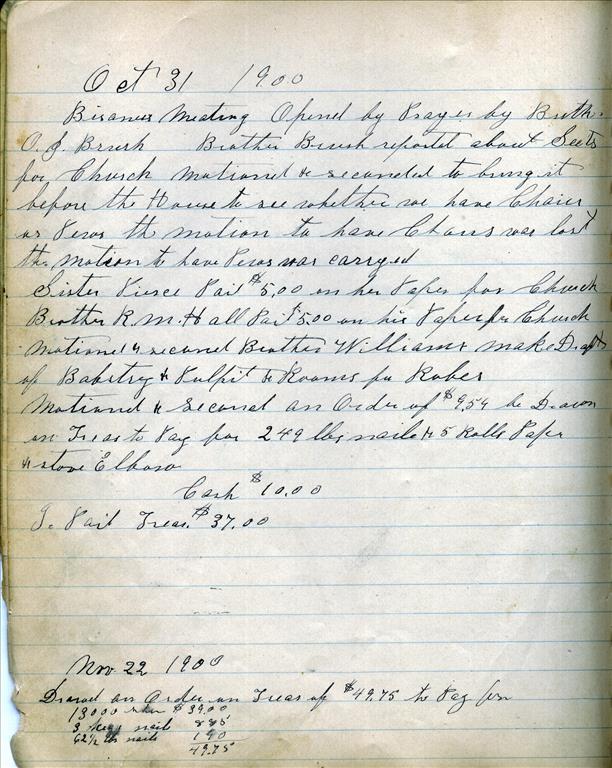 Oct 31 1900
Bisaness Meating Opend by Prayer by Broth.
O. J. Brush Brother Brush reported about Seets
for Church Motiond & seconded to bring it
before the House to see whether we have Chairs
or Pews the motion to have Chairs was lost
the motion to have Pews was carryed
Sister Pierce Paid $5.00 on her Paper for Church
Brother R. M. Hall Paid $5.00 on his Paper for Church
Motiond & second Brother Williams make Draft
of Babstry & Pulpit & Rooms for Robes
Motiond & Second an Order of $9.54 be Drawn
on Treas to Pay for 249 lbs nails & 5 Rolls Paper
& stove Elbow
Cash $10.00
Paid Treas. $37.00
Nov 22 1900
Drawd an Order on Treas of $49.75 to Pay for
13000 $39.00
3 kegs nails 885
62½ lbs nails 190
49.75